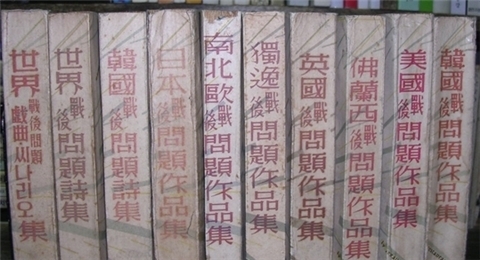 世界戰後問題戱曲·씨나리오集
世界戰後問題詩集
韓國戰後問題詩集
日本戰後問題作品集
南北歐戰後問題作品集
獨逸戰後問題作品集
英國戰後問題作品集
佛蘭西戰後問題作品集
美國戰後問題作品集
韓國戰後問題作品集